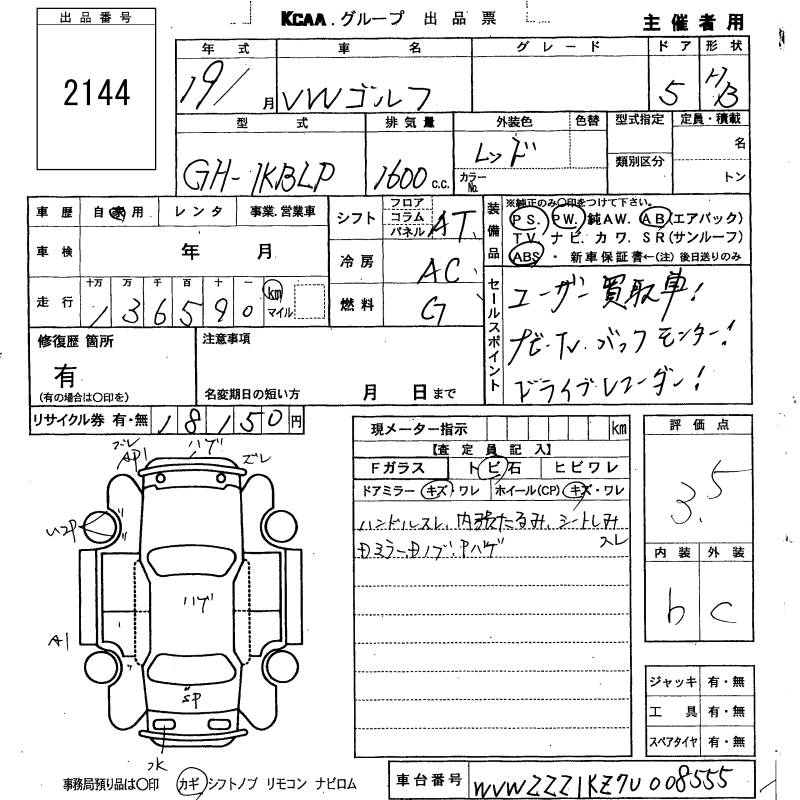 出品番号
2144
KCAA.グループ 出品票
主催者用
年式 車名 グレード ドア 形状
19/ 月 VWゴルフ 5 H/B
型式 排気量 外装色 色替 型式指定 定員・積載
GH-1KBLP 1600 c.c. レッド
カラーNo. 類別区分 名
トン
車歴 自家用 レンタ 事業.営業車
車検 年 月
十万 万 千 百 十 一
走行 136590 km マイル
シフト フロア コラム パネル AT
冷房 AC
燃料 G
装備品
※純正のみ〇印をつけて下さい。
PS. PW. 純AW. AB(エアバック)
TV ナビ. カワ. SR(サンルーフ)
ABS ・ 新車保証書←(注) 後日送りのみ
セールスポイント
ユーザー買取車!
ナビ.TV.バックモニター!
ドライブレコーダー!
修復歴 箇所
有
(有の場合は〇印を)
注意事項
名変期日の短い方 月 日まで
リサイクル券 有・無 18150円
現メーター指示 km
【査定員記入】
Fガラス トビ石 ヒビワレ
ドアミラー キズ・ワレ ホイール(CP) キズ・ワレ
ハンドルスレ、内張たるみ、シートしみ
スレ
Dミラー.Dノブ.Pハゲ
評価点
3.5
内装 外装
b c
ジャッキ 有・無
工具 有・無
スペアタイヤ 有・無
ズレ ハゲ
AP1 ズレ
ハゲ
A1
SP
事務局預り品は〇印 カギ シフトノブ リモコン ナビロム
車台番号 WVWZZZ1KZ7U008555